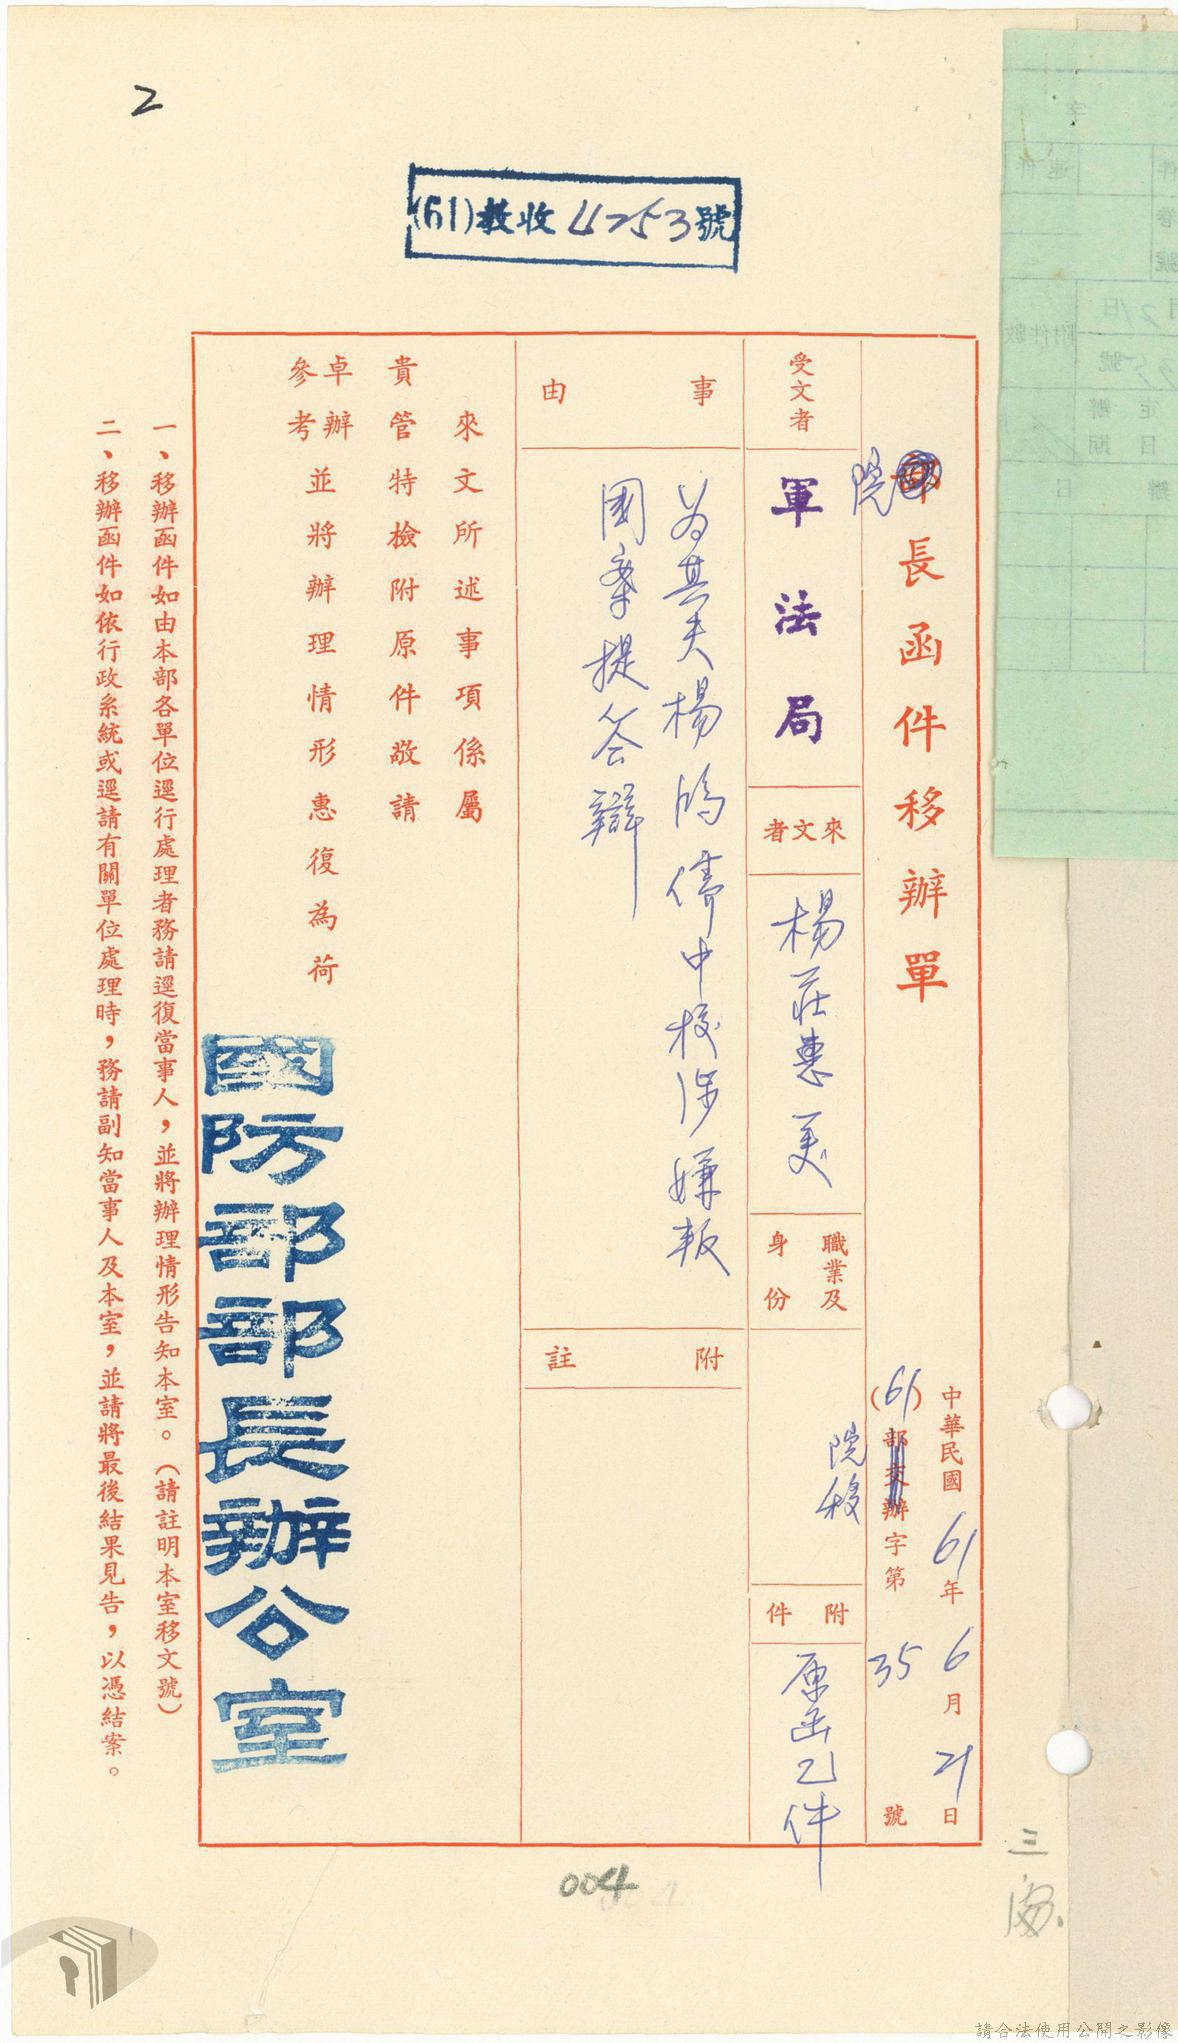 2
(61)教收4253號
院長函件移辦單
中華民國61年6月21日
(61)院移辦字第35號
受文者
軍法局
來文者
楊莊惠美
職業及
身份
附件
原函乙件
事由
為其夫楊鴻儒中校涉嫌叛
國案提答辯
附註
來文所述事項係屬
貴管特檢附原件敬請
卓辦並將辦理情形惠復為荷
參考
國防部部長辦公室
一、移辦函件如由本部各單位逕行處理者務請逕復當事人,並將辦理情形告知本室。(請註明本室移文號)
二、移辦函件如依行政系統或逕請有關單位處理時,務請副知當事人及本室,並請將最後結果見告,以憑結案。
004
三
請合法使用公開之影像